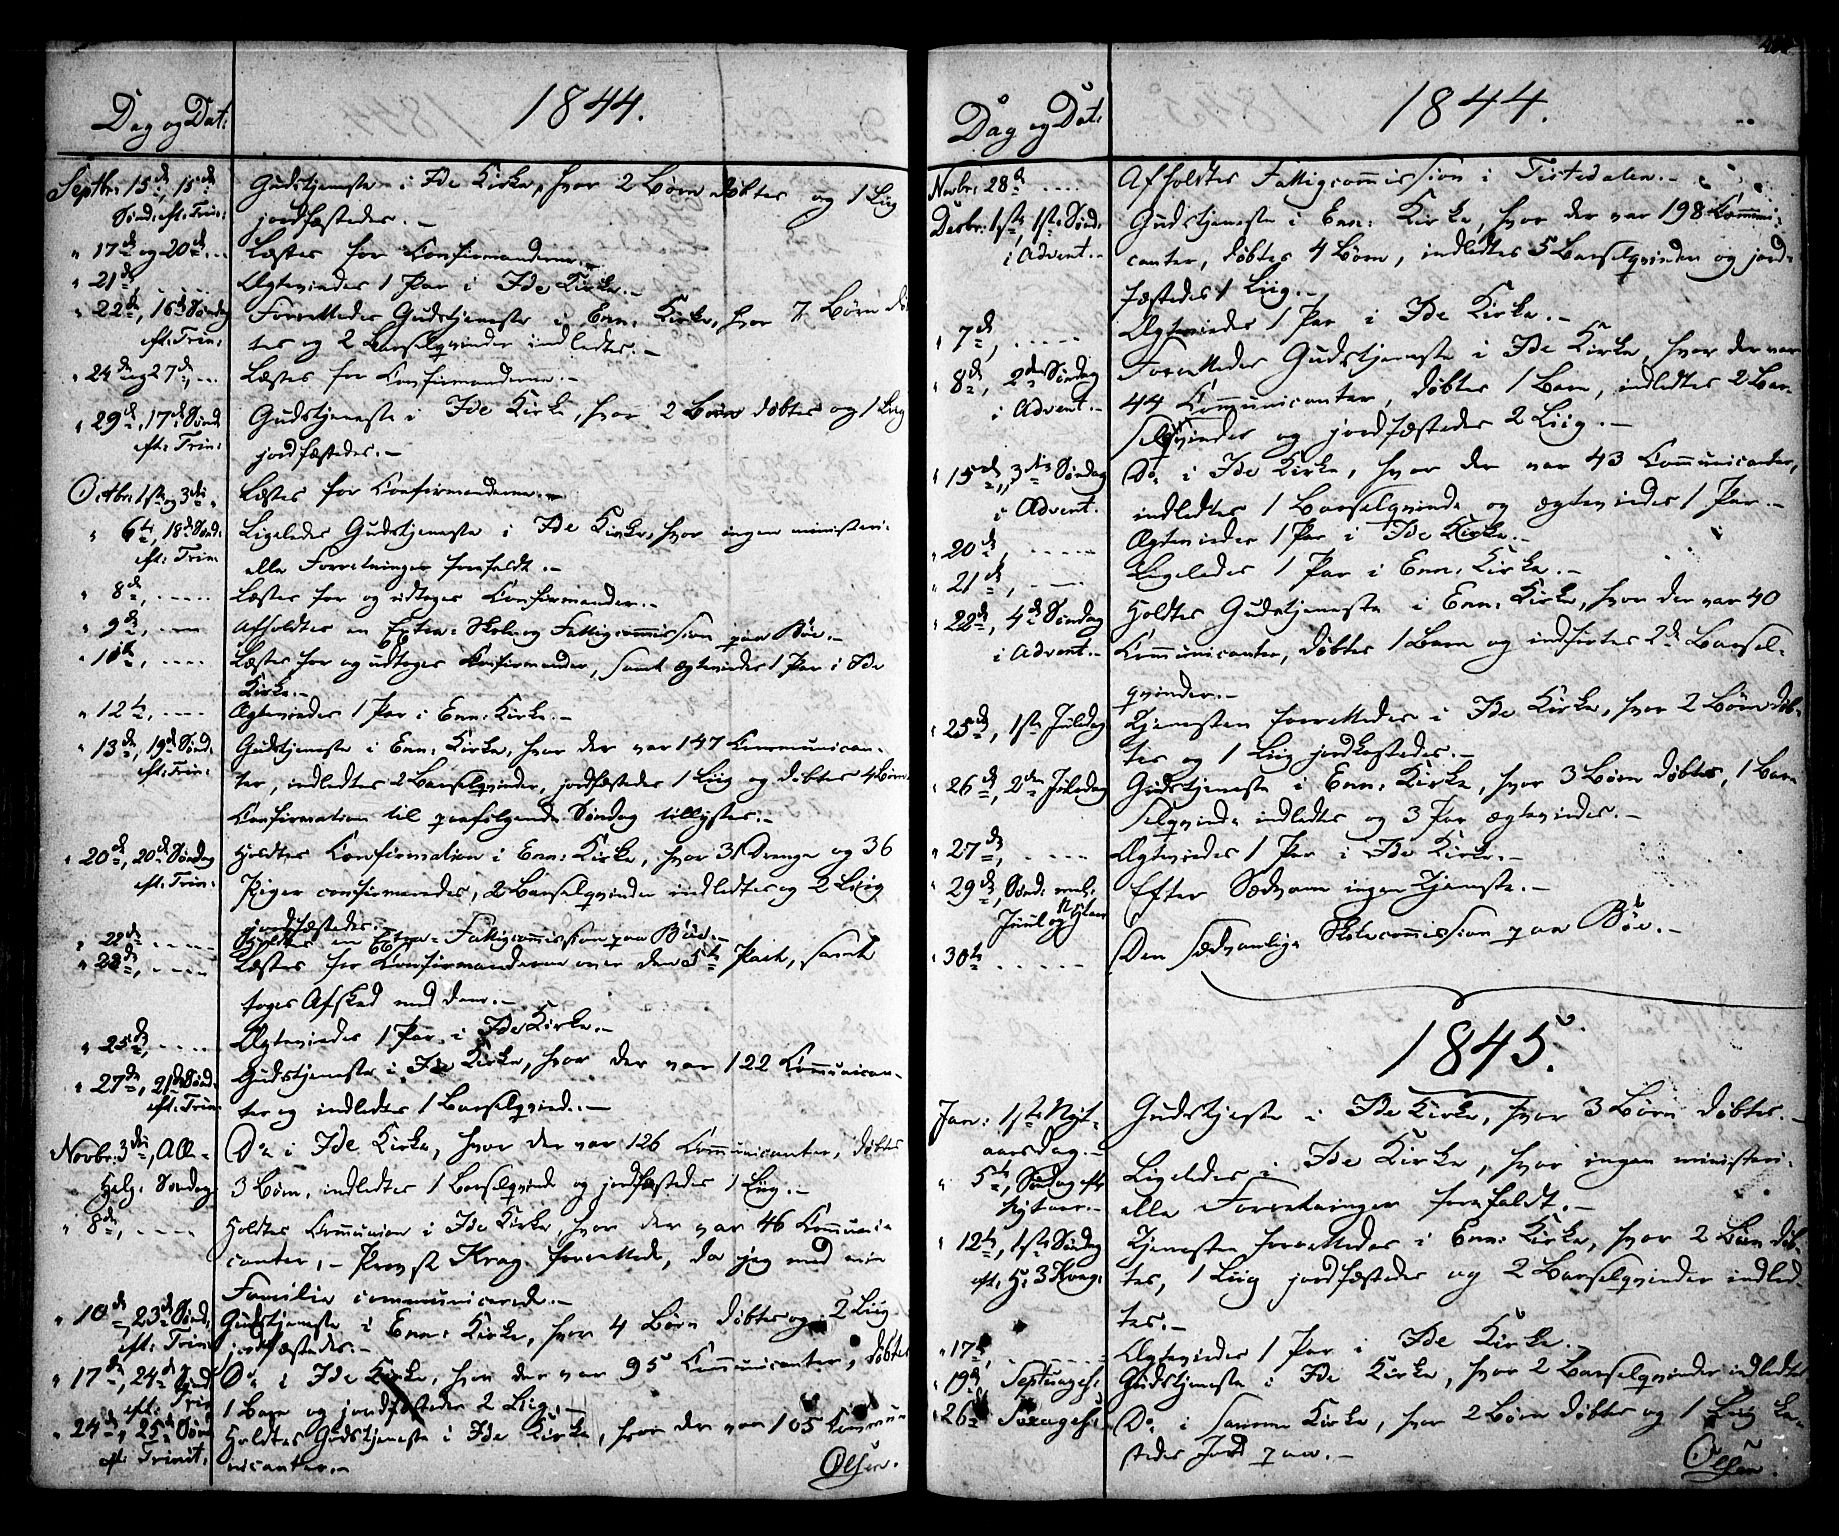 Dag og Dat:
1844.
Septbr: 15de, 15de Gudstjeneste i Ide Kirke, hvor 2 Børn døbtes og 1 Liig
Sønd: eft: Trin: jordfæstedes.-
" 17de og 20de ... Læstes for Confirmanderne.-
" 21de ... Ægteviedes 1 Par i Ide Kirke.-
" 22de, 16de Søndag Forrettedes Gudstjeneste i Enn: Kirke, hvor 7 Børn døb
eft: Trin: tes og 2 Barselqvinder indledtes.-
" 24de og 27de, ... Læstes for Confirmanderne.-
" 29de, 17de Sønd: Gudstjeneste i Ide Kirke, hvor 2 Børn døbtes og 1 Liig
eft: Trin: jordfæstedes.-
Octbr: 1ste og 3die " Læstes for Confirmanderne.-
" 6te, 18de Sønd: Ligeledes Gudstjeneste i Ide Kirke, hvor ingen ministeri-
eft: Trin: elle Forretninger forefaldt.-
" 8de, ..... Læstes for og udtoges Confirmander.-
" 9de, .... Afholdtes en Extra- Skole og Fattigcommission paa Böe.-
" 11te, .... Læstes for og udtoges Confirmander, samt ægteviedes 1 Par i Ide
Kirke.-
" 12te, .... Ægteviedes 1 Par i Enn: Kirke.-
" 13de, 19de Sønd: Gudstjeneste i Enn: Kirke, hvor der var 147 Communican-
eft: Trin: ter, indledtes 2 Barselqvinder, jordfæstedes 1 Liig og døbtes 4 Børn.
Confirmation til paafølgende Søndag tillystes.-
" 20de, 20de Søndag Holdtes Confirmation i Enn: Kirke, hvor 31 Drenge og 36
eft: Trin: Piger confirmeredes, 2 Barselqvinder indledtes og 2 Liig
jordfæstedes.
" 22de ..... Holdtes en Extra- Fattigcommission paa Böe.-
" 23de, .... Læstes for Confirmanderne over den 5te Part, samt
toges Afsked med dem.-
" 25de, ..... Ægteviedes 1 Par i Ide Kirke.-
" 27de, 21de Sønd: Gudstjeneste i Ide Kirke, hvor der var 122 Communican-
eft: Trin: ter og indledtes 1 Barselqvinde.-
Novbr: 3die, Alle- Do i Ide Kirke, hvor der var 126 Communicanter, døbtes
Helg: Søndag 3 Børn, indledtes 1 Barselqvinde og jordfæstedes 1 Liig.-
" 8de, ..... Holdtes Communion i Ide Kirke, hvor der var 46 Communi-
canter,- Provst Krag forrettede, da jeg med min
Familie communicerede.-
" 10de, 23de Sønd: Gudstjeneste i Enn: Kirke, hvor 4 Børn døbtes og 2 Liig
eft: Trin: jordfæstedes.-
" 17de, 24de Sønd: Do i Ide Kirke, hvor der var 95 Communicanter, døbtes
eft: Trin: 1 Barn og jordfæstedes 2 Liig.-
" 24de, 25de Sønd: Holdtes Gudstjeneste i Ide Kirke, hvor der var 105 Commu-
eft: Trinit: nicanter.-
Olsen.
Dag og Dat:
1844.
Novbr: 28de .... Afholdtes Fattigcommission i Tistedalen.-
Decbr: 1ste, 1ste Sønd: Gudstjeneste i Enn: Kirke, hvor der var 198 Communi-
i Advent.- canter, døbtes 4 Børn, indledtes 5 Barselqvinder og jord-
fæstedes 1 Liig.-
" 7de, ..... Ægteviedes 1 Par i Ide Kirke.-
" 8de, 2den Søndag Forrettedes Gudstjeneste i Ide Kirke, hvor der var
i Advent.- 44 Communicanter, døbtes 1 Barn, indledtes 2 Bar-
selqvinder og jordfæstedes 2 Liig.-
" 15de, 3die Søndag Do i Ide Kirke, hvor der var 43 Communicanter,
i Advent. indledtes 1 Barselqvinde og ægteviedes 1 Par.-
" 20de, ..... Ægteviedes 1 Par i Ide Kirke.-
" 21de, .... Ligeledes 1 Par i Enn: Kirke.-
" 22de, 4de Søndag Holdtes Gudstjeneste i Enn: Kirke, hvor der var 40
i Advent.- Communicanter, døbtes 1 Barn og indførtes 2de Barsel-
qvinder.-
" 25de, 1ste Juledag Tjenesten forrettedes i Ide Kirke, hvor 2 Børn døb-
tes og 1 Liig jordkastedes.-
" 26de, 2den Juledag Gudstjeneste i Enn: Kirke, hvor 3 Børn døbtes, 1 Bar-
selqvinde indledtes og 3 Par ægteviedes.-
" 27de, .... Ægteviedes 1 Par i Ide Kirke.-
" 29de, Sønd: ml: Efter Sædvane ingen Tjeneste.-
Juul og Nytaar
" 30te ..... Den sædvanlige Skolecommission paa Böe.-
1845.
Jan: 1ste Nyt- Gudstjeneste i Ide Kirke, hvor 3 Børn døbtes.-
aarsdag.-
" 5te, Søndag eft: Ligeledes i Ide Kirke, hvor ingen ministeri-
Nytaar.- elle Forretninger forefaldt.-
" 12te, 1ste Søndag Tjenesten forrettedes i Enn: Kirke, hvor 2 Børn døb-
eft: H: 3 Kong: tes, 1 Liig jordfæstedes og 2 Barselqvinder indled-
tes.-
" 17de, ...... Ægteviedes 1 Par i Ide Kirke.-
" 19de, Septuages: Gudstjeneste i Ide Kirke, hvor 2 Barselqvinder indledtes
" 26de Sexages: Do i samme Kirke, hvor 2 Børn døbtes og 1 Liig ka-
stedes Jord paa.-
Olsen.